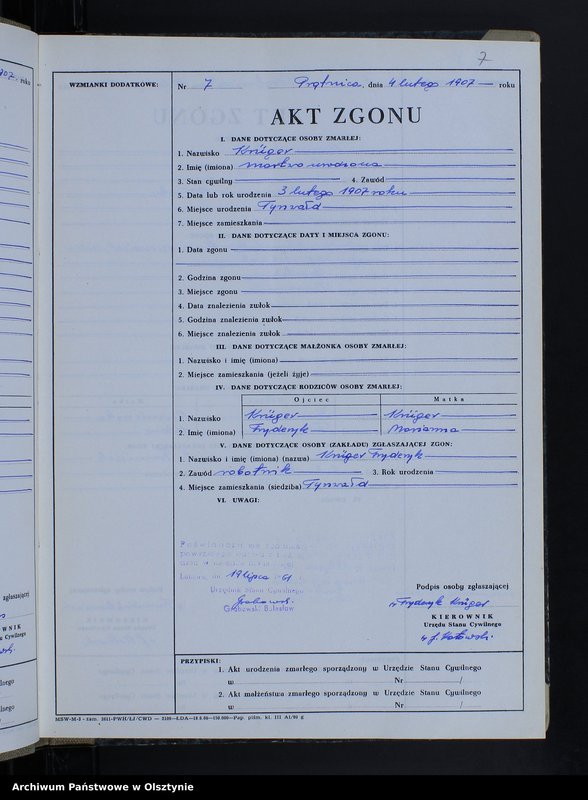 7
WZMIANKI DODATKOWE:
Nr 7 Prątnica, dnia 4 lutego 1907 roku
AKT ZGONU
I. DANE DOTYCZĄCE OSOBY ZMARŁEJ:
1. Nazwisko Krüger
2. Imię (imiona) martwo urodzona
3. Stan cywilny 4. Zawód
5. Data lub rok urodzenia 3 lutego 1907 roku
6. Miejsce urodzenia Tynwałd
7. Miejsce zamieszkania
II. DANE DOTYCZĄCE DATY I MIEJSCA ZGONU:
1. Data zgonu
2. Godzina zgonu
3. Miejsce zgonu
4. Data znalezienia zwłok
5. Godzina znalezienia zwłok
6. Miejsce znalezienia zwłok
III. DANE DOTYCZĄCE MAŁŻONKA OSOBY ZMARŁEJ:
1. Nazwisko i imię (imiona)
2. Miejsce zamieszkania (jeżeli żyje)
IV. DANE DOTYCZĄCE RODZICÓW OSOBY ZMARŁEJ:
Ojciec Matka
1. Nazwisko Krüger Krüger
2. Imię (imiona) Fryderyk Marianna
V. DANE DOTYCZĄCE OSOBY (ZAKŁADU) ZGŁASZAJĄCEJ ZGON:
1. Nazwisko i imię (imiona) (nazwa) Krüger Fryderyk
2. Zawód robotnik 3. Rok urodzenia
4. Miejsce zamieszkania (siedziba) Tynwałd
VI. UWAGI:
19 lipca 61
Urzędnik Stanu Cywilnego
Grabowski
Grabowski Bolesław
Podpis osoby zgłaszającej
Fryderyk Krüger
KIEROWNIK
Urzędu Stanu Cywilnego
PRZYPISKI:
1. Akt urodzenia zmarłego sporządzony w Urzędzie Stanu Cywilnego
w Nr /
2. Akt małżeństwa zmarłego sporządzony w Urzędzie Stanu Cywilnego
w Nr
Archiwum Państwowe w Olsztynie